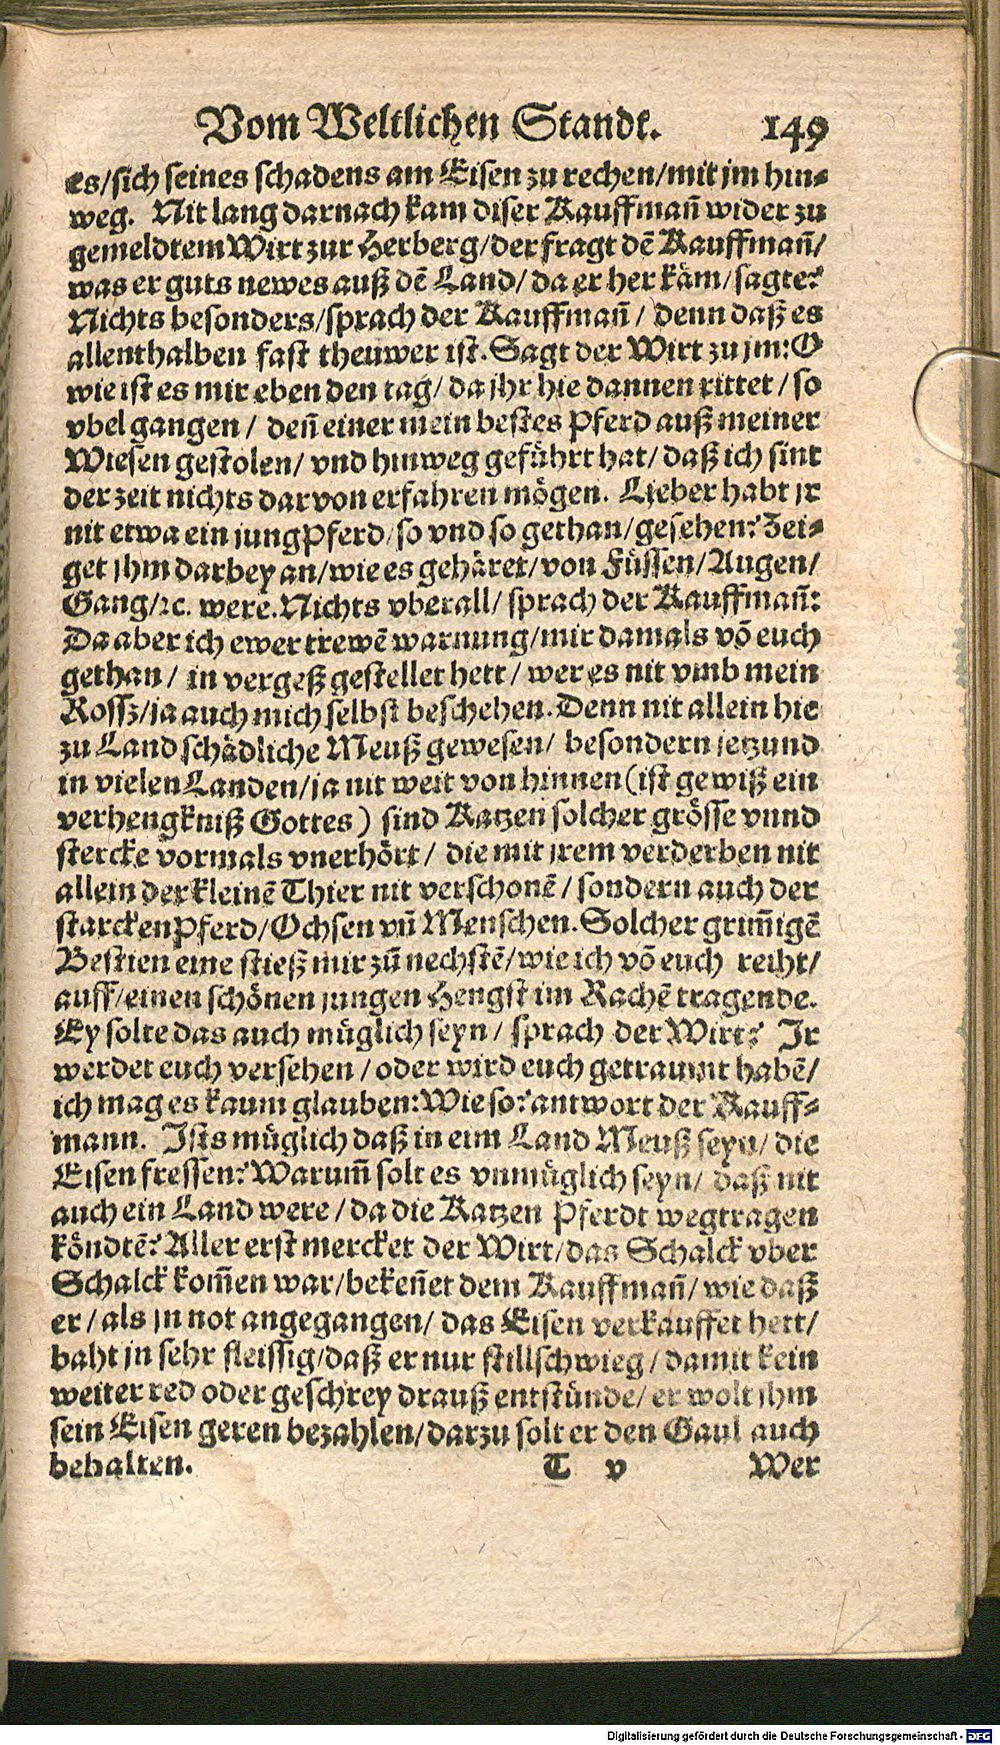 Vom Weltlichen Standt. 149
es/sich seines schadens am Eisen zu rechen/mit jm hin⸗
weg. Nit lang darnach kam diser Kauffmañ wider zu
gemeldtem Wirt zur Herberg/der fragt dẽ Kauffmañ/
was er guts newes auß dẽ Land/ da er her käm/sagte?
Nichts besonders/sprach der Kauffmañ/ denn daß es
allenthalben fast theuwer ist. Sagt der Wirt zu jm: O
wie ist es mir eben den tag/ da jhr hie dannen rittet/ so
vbel gangen/ deñ einer mein bestes Pferd auß meiner
Wiesen gestolen/ vnd hinweg geführt hat/ daß ich sint
der zeit nichts darvon erfahren mögen. Lieber habt jr
nit etwa ein jung Pferd/so vnd so gethan/gesehen? Zei⸗
get jhm darbey an/wie es gehäret/von Füssen/Augen/
Gang/ꝛc. were. Nichts vberall/ sprach der Kauffmañ:
Da aber ich ewer trewẽ warnung/mir damals võ euch
gethan/ in vergeß gestellet hett/ wer es nit vmb mein
Rossz/ja auch mich selbst beschehen. Denn nit allein hie
zu Land schädliche Meuß gewesen/ besondern jetzund
in vielen Landen/ja nit weit von hinnen (ist gewiß ein
verhengkniß Gottes) sind Katzen solcher grösse vnnd
stercke vormals vnerhört/ die mit jrem verderben nit
allein der kleinẽ Thier nit verschonẽ/ sondern auch der
starcken Pferd/Ochsen vñ Menschen. Solcher grim̃igẽ
Bestien eine stieß mir zũ nechstẽ/wie ich võ euch reiht/
auff/einen schönen jungen Hengst im Rachẽ tragende.
Ey solte das auch müglich seyn/ sprach der Wirt? Jr
werdet euch versehen/ oder wird euch getraumt habẽ/
ich mag es kaum glauben: Wie so? antwort der Kauff⸗
mann. Ists müglich daß in eim Land Meuß seyn/ die
Eisen fressen? Warum̃ solt es vnmüglich seyn/ daß nit
auch ein Land were/ da die Katzen Pferdt wegtragen
köndtẽ? Aller erst mercket der Wirt/das Schalck vber
Schalck kom̃en war/bekeñet dem Kauffmañ/ wie daß
er/ als jn not angegangen/ das Eisen verkauffet hett/
baht jn sehr fleissig/daß er nur stillschwieg/ damit kein
weiter red oder geschrey drauß entstünde/ er wolt jhm
sein Eisen geren bezahlen/darzu solt er den Gaul auch
behalten. T v Wer
Digitalisierung gefördert durch die Deutsche Forschungsgemeinschaft - DFG